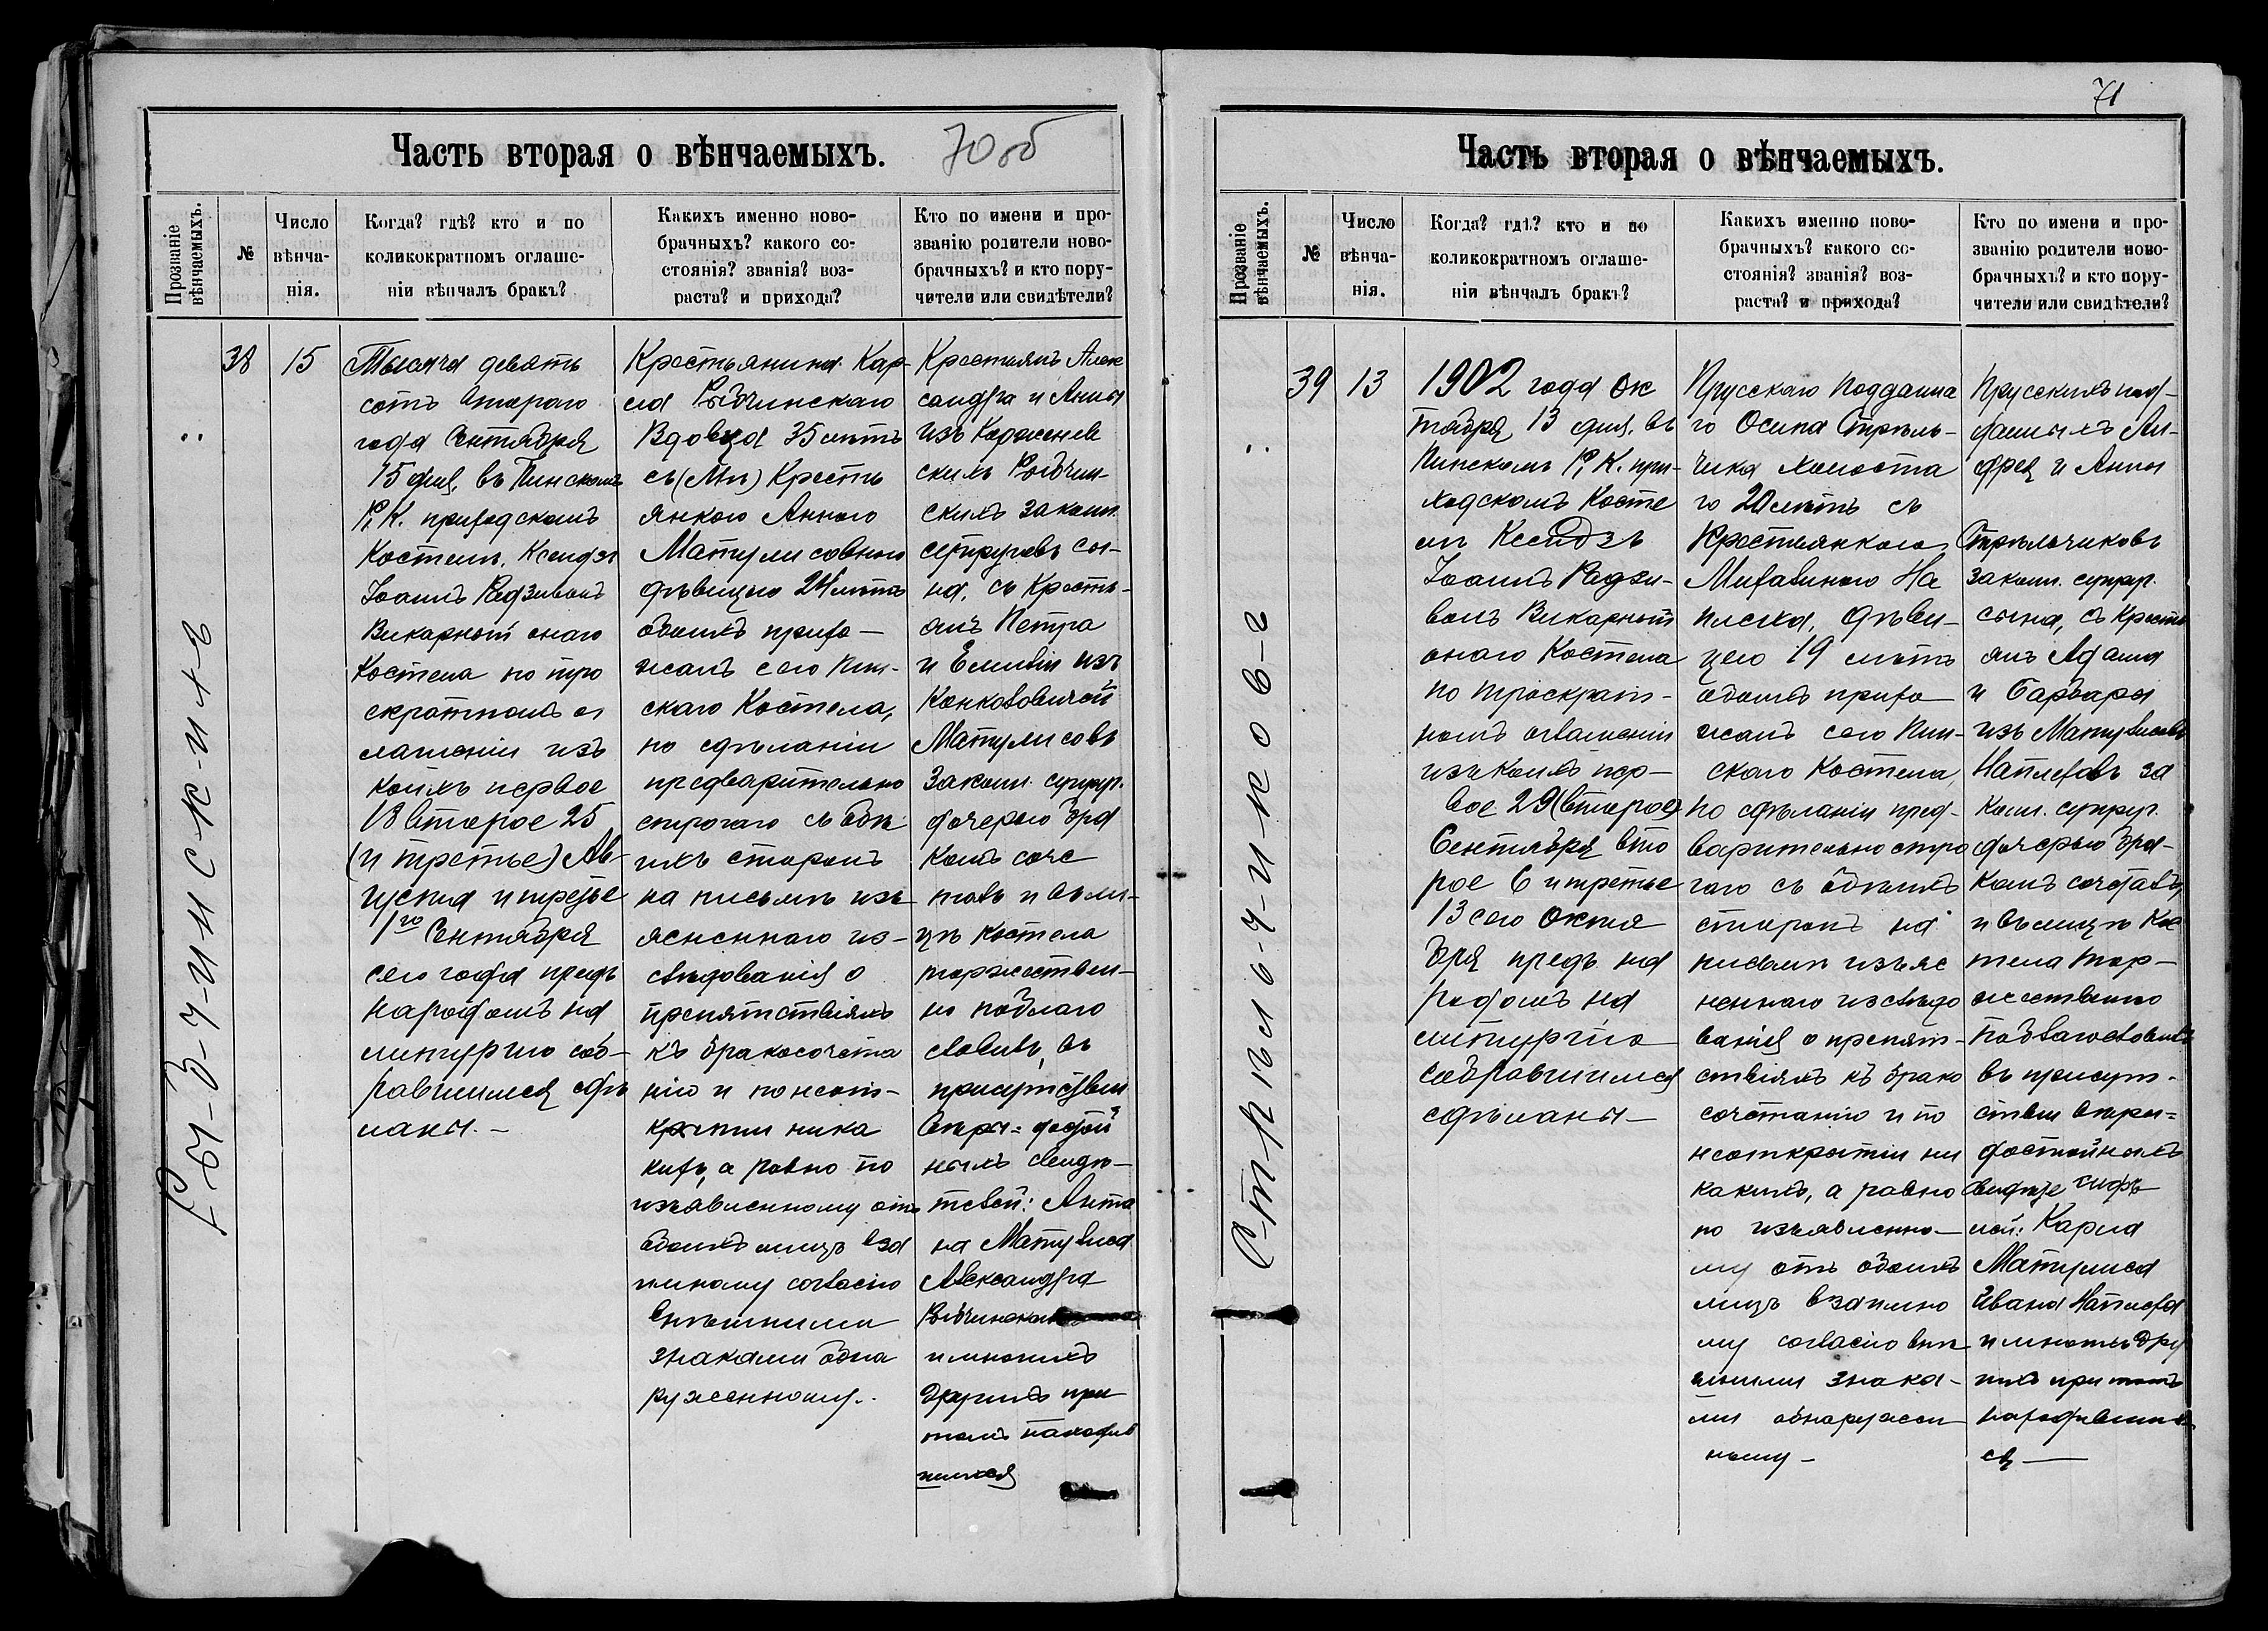 Часть вторая о вѣнчаемыхъ.
70 об
Прозваніе вѣнчаемыхъ.
№
Число вѣнча-
нія.
Когда? гдѣ? кто и по
коликократномъ оглаше-
ніи вѣнчалъ бракъ?
Какихъ именно ново-
брачныхъ? какого со-
стоянія? званія? воз-
раста? и прихода?
Кто по имени и про-
званію родители ново-
брачныхъ? и кто пору-
чители или свидѣтели?
38
15
Тысяча девять
сотъ второго
года Сентября
15 дня, въ Пинскомъ
Р. К. приходскомъ
Костелѣ, Ксендзъ
Іоаннъ Радзивонъ
Викарный онаго
Костела по тро
екратномъ ог
лашеніи изъ
коихъ первое
18 второе 25
(и третье) Ав-
густа и третье
1го Сентября
сего года предъ
народомъ на
литургію соб-
равшимся сдѣ
ланы. -
Крестьянина Кар-
ла Рыбчинскаго
Вдовца 35 лѣтъ
съ (Мъ) Кресть
янкою Анною
Матулисовною
дѣвицею 24 лѣтъ
обоихъ прихо-
жанъ сего Пин-
скаго Костела,
по сдѣланіи
предварительно
строгаго съ обѣ
ихъ сторонъ
на письмѣ изъ
ясненнаго из-
слѣдованія о
препятствіяхъ
къ бракосочета
нію и по неот-
крытіи ника
кихъ, а равно по
изъявленному отъ
обоихъ лицъ вза
имному согласію
внѣшними
знаками обна
руженному..
Крестьянъ Алек
сандра и Анны
изъ Кордженев
скихъ Рыбчин-
скихъ законн.
супруговъ сы-
на, съ Кресть-
янъ Петра
и Емиліи изъ
Матулисовъ
законн. супруг.
дочерью бра
комъ соче
талъ и въ ли-
цѣ костела
торжествен-
но поблаго
словилъ, въ
присутствіи
вѣры-достой
ныхъ свидѣ-
телей: Анто
на Матулиса
Александра
и многихъ
другихъ при
томъ находив
шихся
Ры-б-ч-и-н-с-к-и-х-ъ
71
Часть вторая о вѣнчаемыхъ.
Прозваніе вѣнчаемыхъ.
№
Число вѣнча-
нія.
Когда? гдѣ? кто и по
коликократномъ оглаше-
ніи вѣнчалъ бракъ?
Какихъ именно ново-
брачныхъ? какого со-
стоянія? званія? воз-
раста? и прихода?
Кто по имени и про-
званію родители ново-
брачныхъ? и кто пору-
чители или свидѣтели?
39
13
1902 года Ок
тября 13 дня, въ
Пинскомъ Р. К. при-
ходскомъ Косте
лѣ Ксендзъ
Іоаннъ Радзи-
вонъ Викарный
онаго Костела
по троекрат-
номъ оглашеніи
изъ коихъ пер-
вое 29 (второе)
Сентября вто
рое 6 и третье
13 сего Октя
бря предъ на
родомъ на
литургію
собравшимся
сдѣланы -
Прусскаго подданна
го Осипа Стрѣль-
чика холоста
го 20 лѣтъ съ
Крестьянкою
Михалиною На
дѣви-
цею 19 лѣтъ
обоихъ прихо
жанъ сего Пин-
скаго Костела,
по сдѣланіи пред-
варительно стро
гаго съ обѣихъ
сторонъ на
письмѣ изъяс
неннаго изслѣдо
ванія о препят-
ствіяхъ къ брако
сочетанію и по
неоткрытіи ни
какихъ, а равно
по изъявленно-
му отъ обоихъ
лицъ взаимно
му согласію внѣ
шними знака-
ми обнаружен
ному -
Прусскихъ под-
данныхъ Ан-
дрея и Анны
Стрѣльчиковъ
законн. супруг.
сына, съ Кресть
янъ Адама
и Барбары
изъ Матулисовъ
за
конн. супруг.
дочерью бра-
комъ сочеталъ
и въ лицѣ Кос
тела тор-
жественно
поблагословилъ
въ присут-
ствіи вѣры-
достойныхъ
свидѣте
лей: Карла
Матулиса
Ивана
и многихъ дру
гихъ при томъ
находивших
ся -
С-т-р-ѣ-л-ь-ч-и-к-о-в-ъ